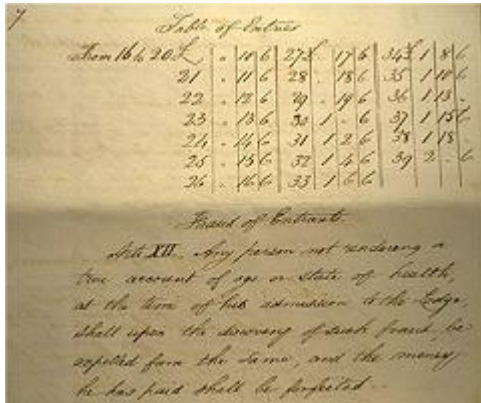 7
Table of Entries
From 16 to 20 £ " 10 6 27 £ " 17 6 34 £ 1 8 6
21 " 11 6 28 " 18 6 35 1 10 6
22 " 12 6 29 " 19 6 36 1 13 "
23 " 13 6 30 1 " 6 37 1 15 6
24 " 14 6 31 1 2 6 38 1 18
25 " 15 6 32 1 4 6 39 2 " 6
26 " 16 6 33 1 6 6
Fraud of Entrants.
Arte XII. Any person not rendering a
true account of age or state of health,
at the time of his admission to the Lodge,
shall upon the discovery of such fraud, be
expelled from the same, and the money
he has paid shall be forfeited.